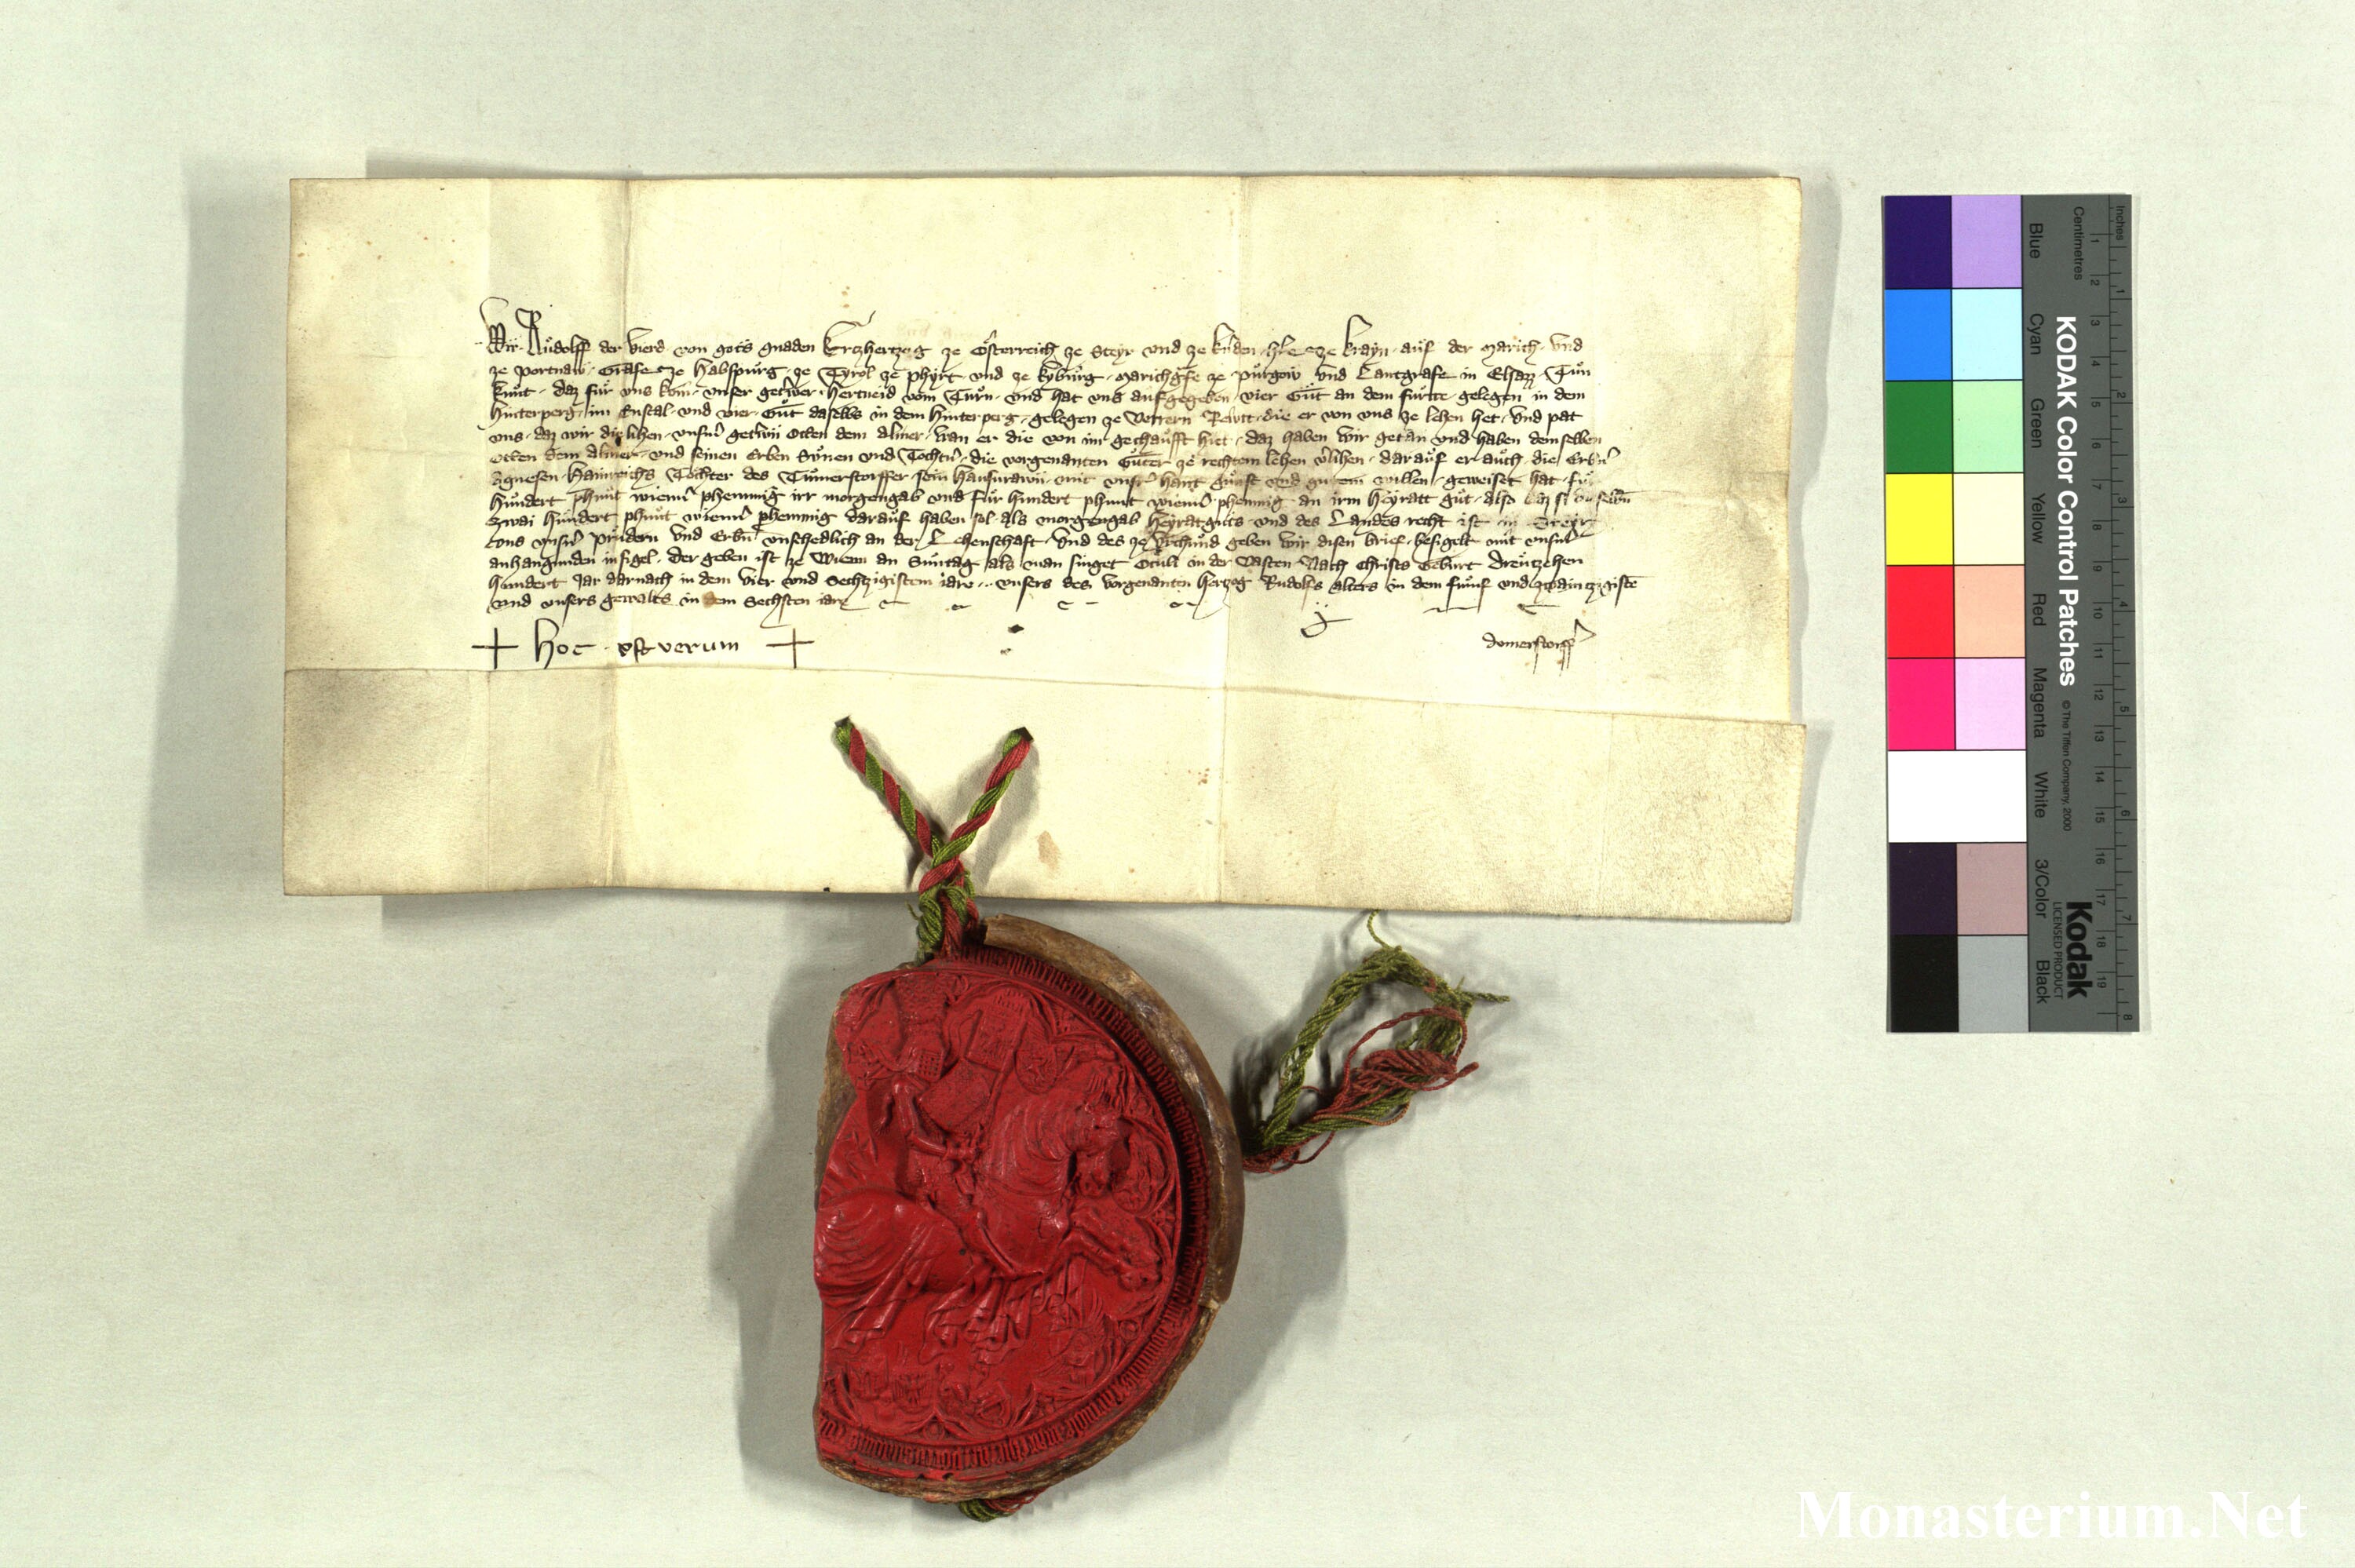 Wir Růdolff der vierd von gots gnaden Ertzhertzog ze Ősterreich ze Steyr und ze kernden ze krayn auf der Marich und
ze Portnaw Grafe ze Habspůrg ze Tyrol ze phyrt und ze kyburg Marichgrafe ze Půrgow und Lantgrafe in Elsazz Tůn
kunt daz fůr uns kom unser getrewer Hertneid vom Turn und hat uns aufgegeben vier Gůt an dem furtte gelegen in dem
Hinterperg im Enstal und vier Gůt daselbs in dem Hinterperg gelegen ze die er von uns ze lehen het und pat
uns daz wir die lihen unserm getrewn Otten dem Almer wan er die von im gechaufft hiet daz haben wir getan und haben demselben
Otten dem Almer und seinen Erben Sůnen und Tochtern die vorgenanten Gůter ze rechtem lehen verlihen darauf er auch die Erbern
Agnesen Hainreichs Tochter des Tůmerstorffer sein hausfrawn mit unser hant gunst und gutem willen geweiset hat fůr
Hundert phunt wienner phenning irr morgengab und fůr hundert phunt wienner phenning an irm Heyratt gůt also daz si dieselben
Zwai hundert phunt wienner phenning darauf haben sol als morgengab Heyratguts und des Landes recht ist in Steyr
uns unsern prudern und Erben unschedlich an der Lehenschaft und des ze urchund geben wir disen brief besigelt mit unserm
anhangunden insigel der geben ist ze Wienn an Sunntag als man singet Oculi in der Vasten Nach Christs Geburt dreutzehen
hundert Jar darnach in dem vier und Sechtzigistem iare unsers des vorgenanten Hertzog Rudolfs alters in dem funf und zwaintzgisten
und unsers gewalts in dem Sechsten iare
+ hoc est verum +
domerstorff
Inches
Centimetres
KODAK Color Control Patches
© The Tiffen Company, 2000
Kodak
LICENSED PRODUCT
Blue Cyan Green Yellow Red Magenta White 3/Color Black
1 2 3 4 5 6 7 8 9 10 11 12 13 14 15 16 17 18 19
1 2 3 4 5 6 7 8
Monasterium.Net